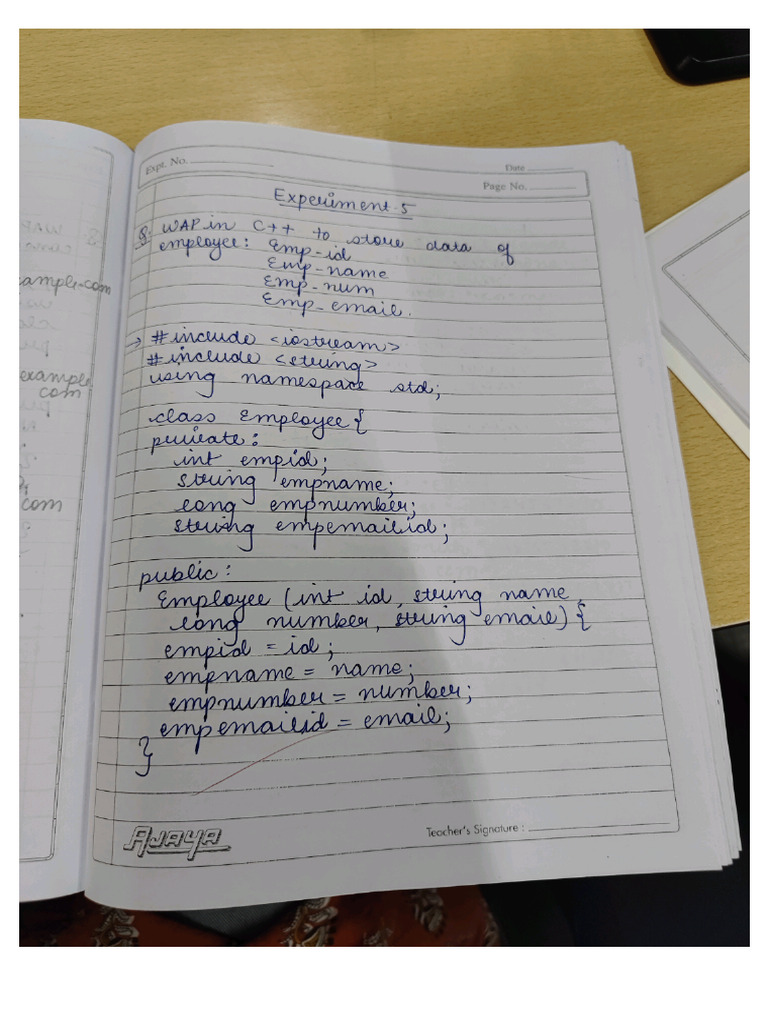 ample.com
example
com
com
Expt. No.
Date
Page No.
Experiment-5
Q. WAP in C++ to store data of
employee: Emp-id
Emp-name
Emp-num
Emp-email.
→ #include <iostream>
#include <string>
using namespace std;
class Employee{
private:
int empid;
string empname;
long empnumber;
string empemailid;
public:
Employee (int id, string name,
long number, string email) {
empid = id;
empname = name;
empnumber = number;
empemailid = email;
}
AJAYA
Teacher's Signature :